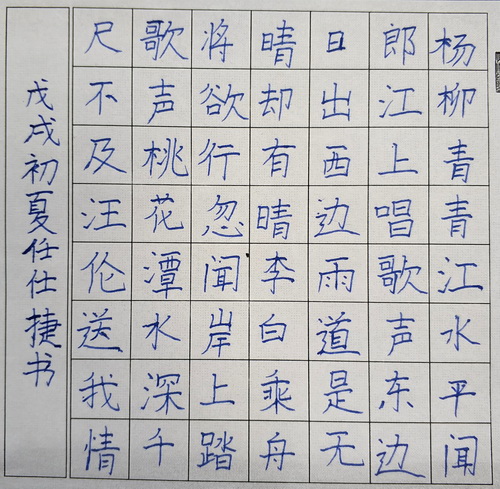 杨柳青青江水平闻
郎江上唱歌声东边
日出西边雨道是无
晴却有晴李白乘舟
将欲行忽闻岸上踏
歌声桃花潭水深千
尺不及汪伦送我情
戊戌初夏任仕捷书